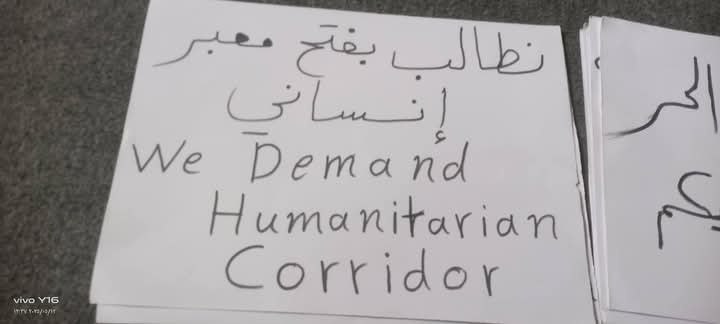 نطالب بفتح معبر
إنساني
We Demand
Humanitarian
Corridor
vivo Y16